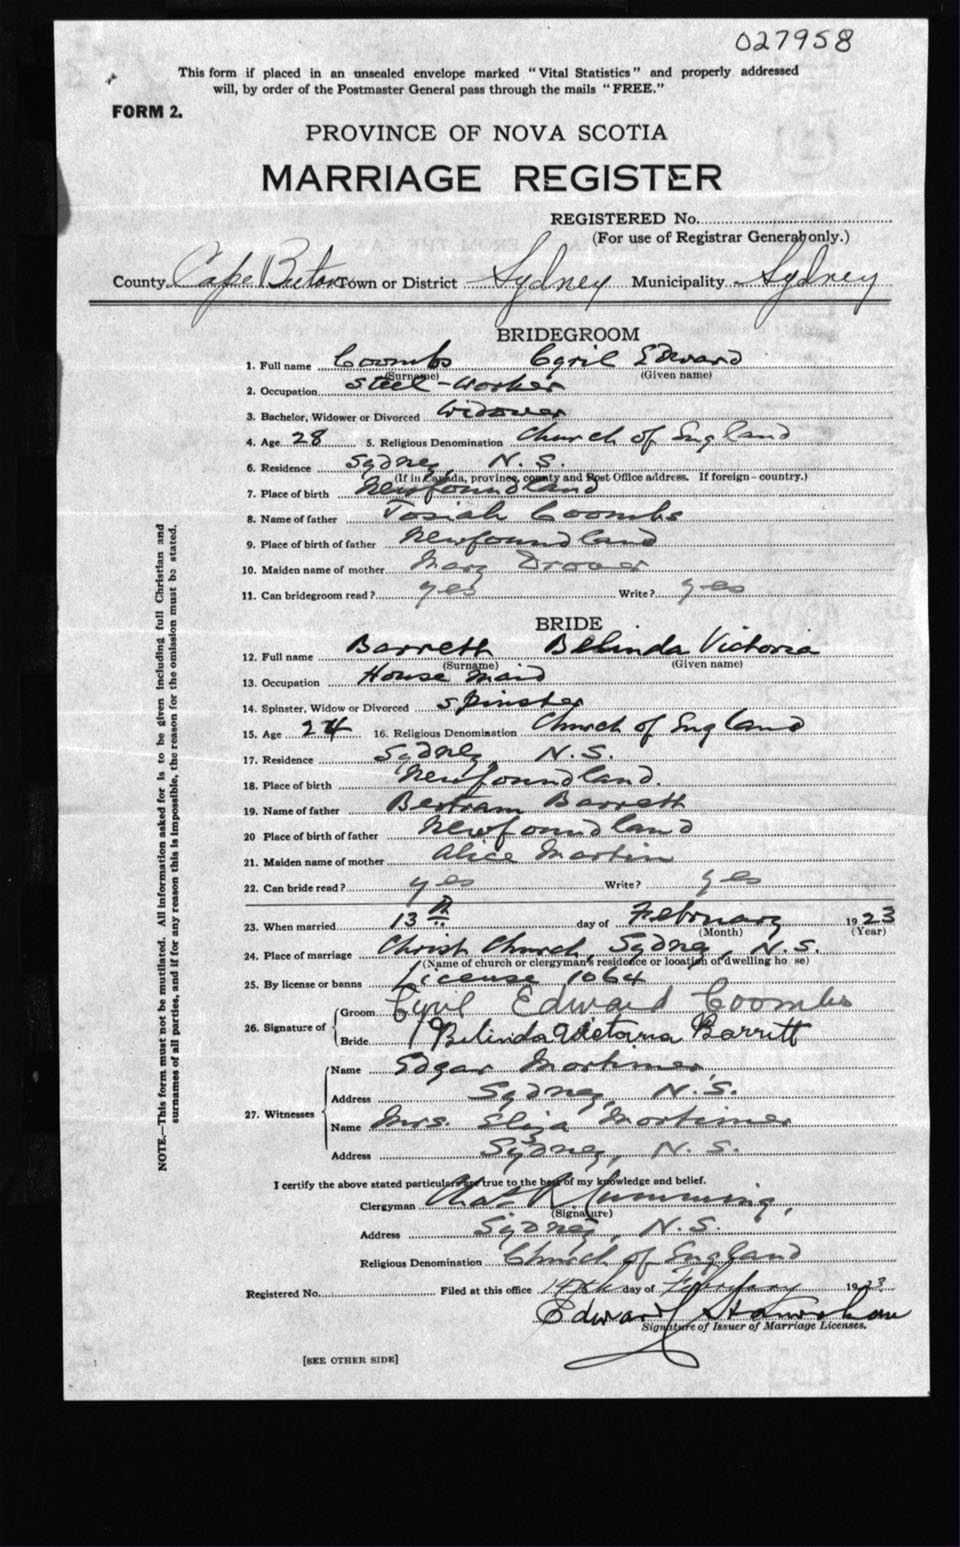 027958
This form if placed in an unsealed envelope marked "Vital Statistics" and properly addressed
will, by order of the Postmaster General pass through the mails "FREE."
FORM 2.
PROVINCE OF NOVA SCOTIA
MARRIAGE REGISTER
REGISTERED No.
(For use of Registrar General only.)
County Cape Breton Town or District Sydney Municipality Sydney
BRIDEGROOM
1. Full name Coombs Cyril Edward
(Surname) (Given name)
2. Occupation Steel-worker
3. Bachelor, Widower or Divorced Widower
4. Age 28 5. Religious Denomination Church of England
6. Residence Sydney, N. S.
(If in Canada, province, county and Post Office address. If foreign—country.)
7. Place of birth Newfoundland
8. Name of father Josiah Coombs
9. Place of birth of father Newfoundland
10. Maiden name of mother Mary Drover
11. Can bridegroom read? yes Write? yes
BRIDE
12. Full name Barrett Belinda Victoria
(Surname) (Given name)
13. Occupation House Maid
14. Spinster, Widow or Divorced Spinster
15. Age 24 16. Religious Denomination Church of England
17. Residence Sydney N.S.
18. Place of birth Newfoundland.
19. Name of father Bertram Barrett
20 Place of birth of father Newfoundland
21. Maiden name of mother Alice Martin
22. Can bride read? yes Write? yes
23. When married 13th day of February 1923
(Month) (Year)
24. Place of marriage Christ Church, Sydney, N.S.
(Name of church or clergyman's residence or location of dwelling ho se)
25. By license or banns License 1064
26. Signature of Groom Cyril Edward Coombs
Bride Belinda Victoria Barritt
27. Witnesses Name Edgar Mortimer
Address Sydney, N.S.
Name Mrs. Eliza Mortimer
Address Sydney, N.S.
I certify the above stated particulars are true to the best of my knowledge and belief.
Clergyman Chas R Cumming,
(Signature)
Address Sydney, N.S.
Religious Denomination Church of England
Registered No. Filed at this office 14th day of February 1923
Edward
Signature of Issuer of Marriage Licenses.
[SEE OTHER SIDE]
NOTE.—This form must not be mutilated. All information asked for is to be given including full Christian and
surnames of all parties, and if for any reason this is impossible, the reason for the omission must be stated.